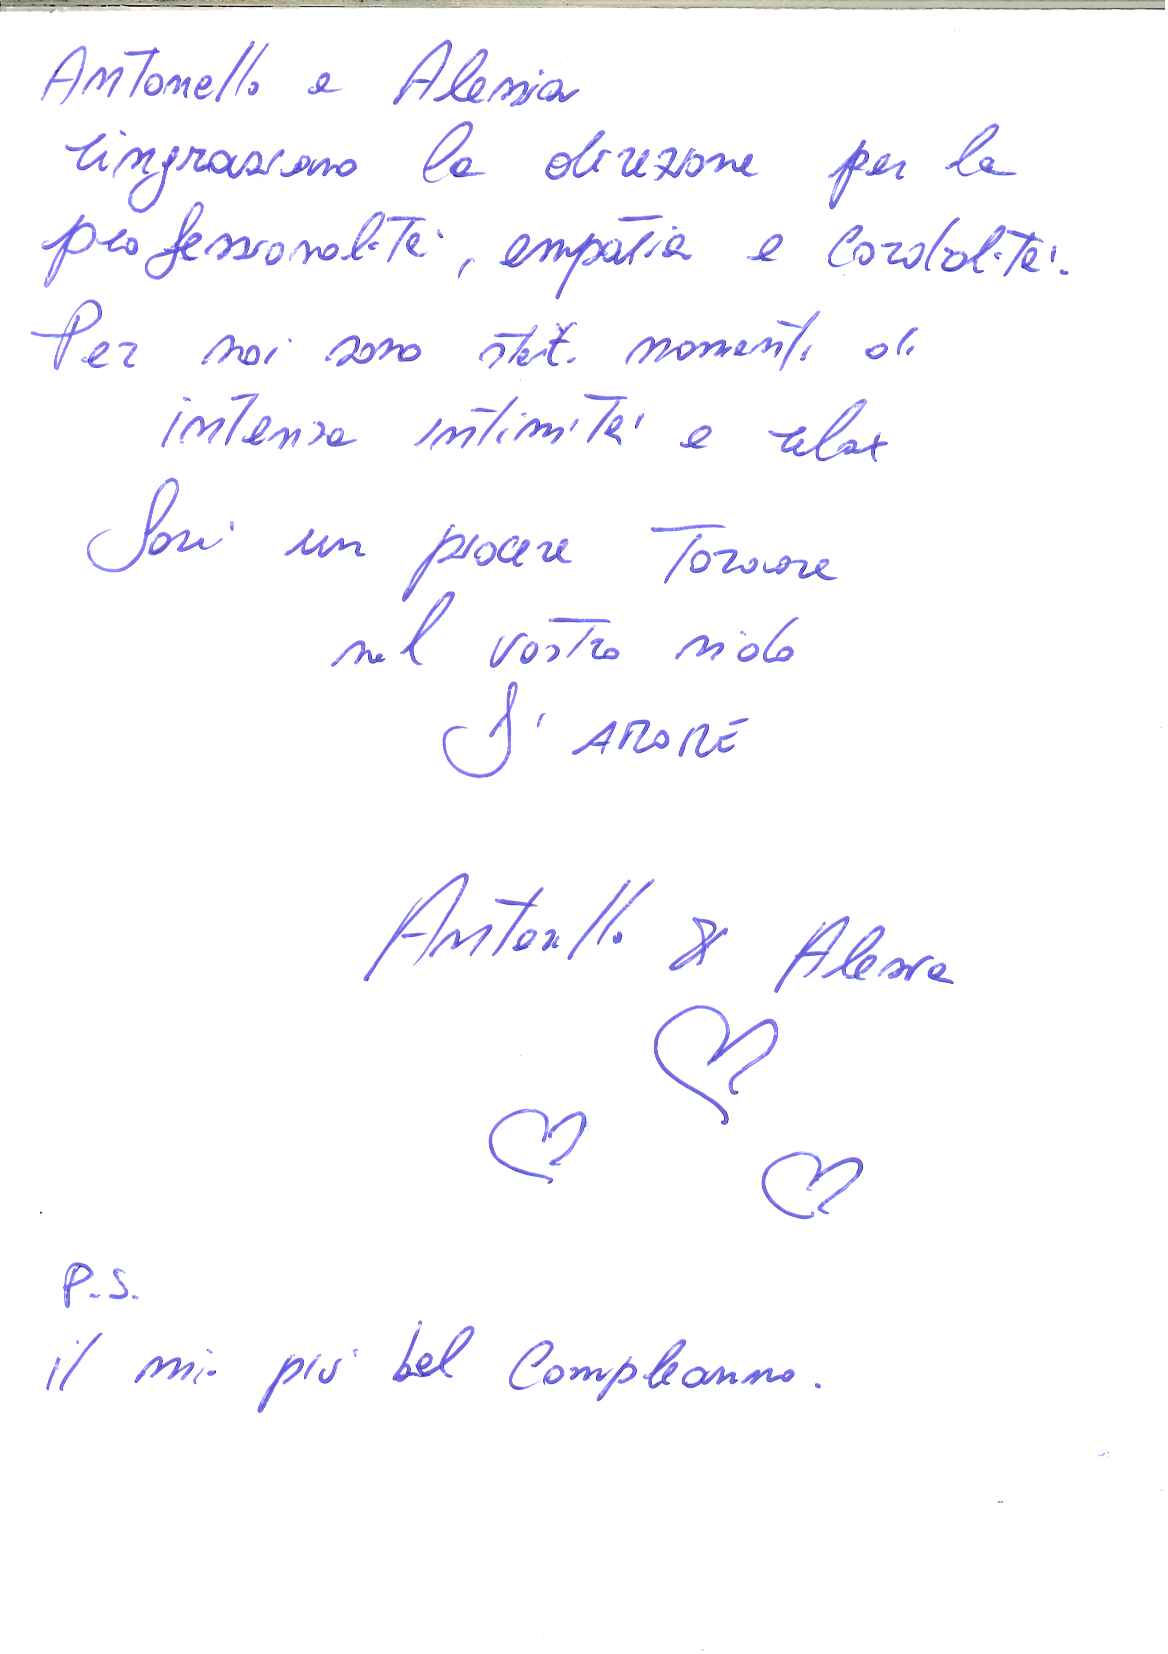 Antonello e Alessia
ringraziano la direzione per la
professionalità, empatia e cordialità.
Per noi sono stati momenti di
intensa intimità e relax
Sarà un piacere tornare
nel vostro nido
D'AMORE
Antonello & Alessia
P.S.
il mio più bel compleanno.